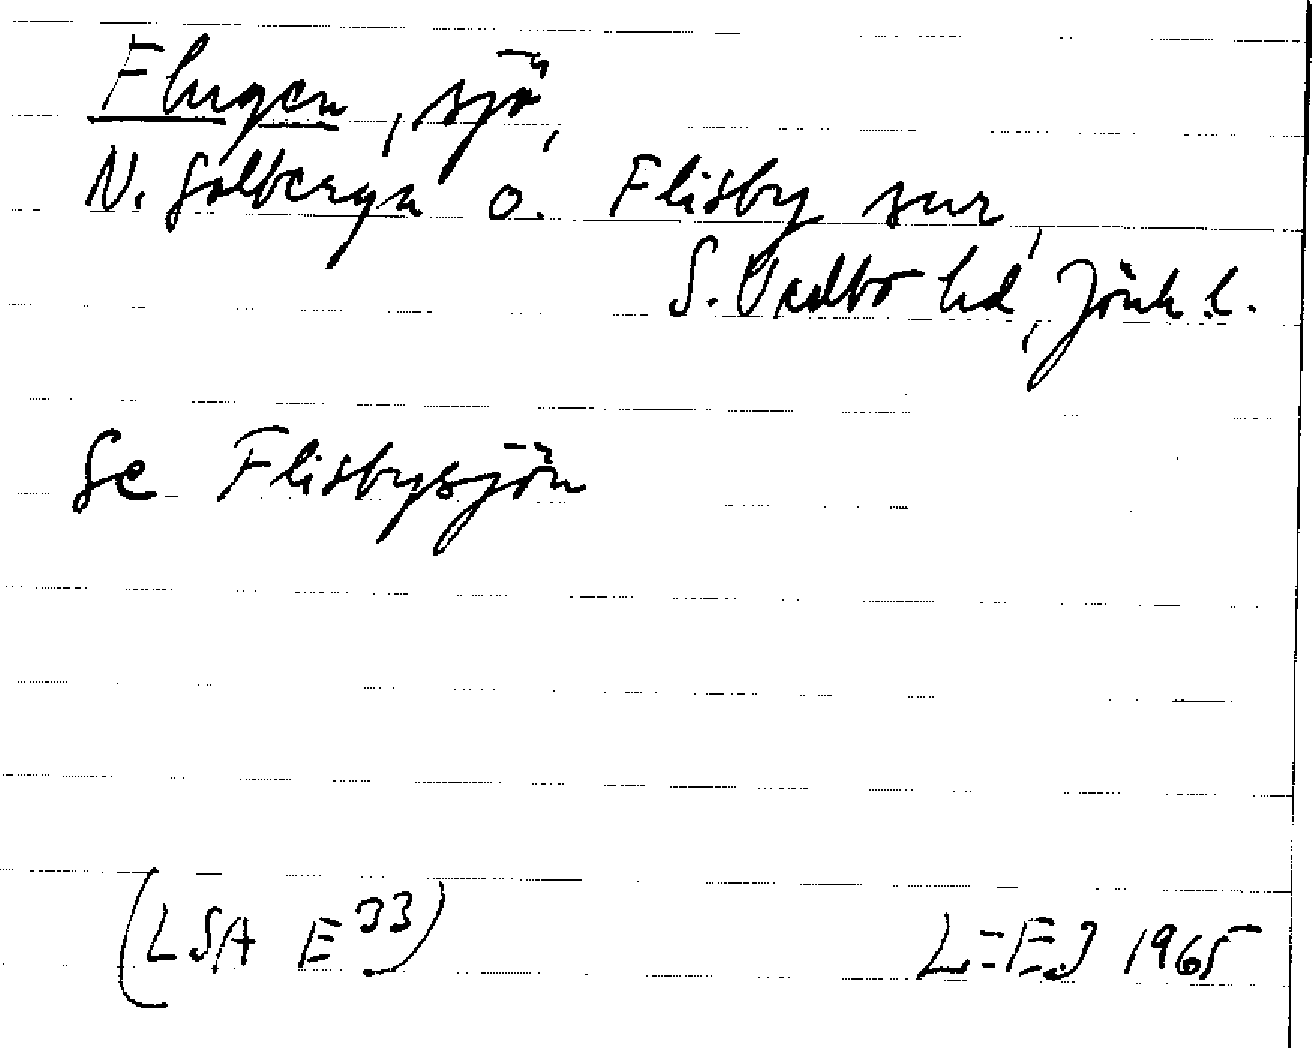 Flugen, sjö,
N. Solberga o. Flisby snr,
S. Vedbo hd, Jönk. l.
Se Flisbysjön
(LSA E33)
L-EJ 1965